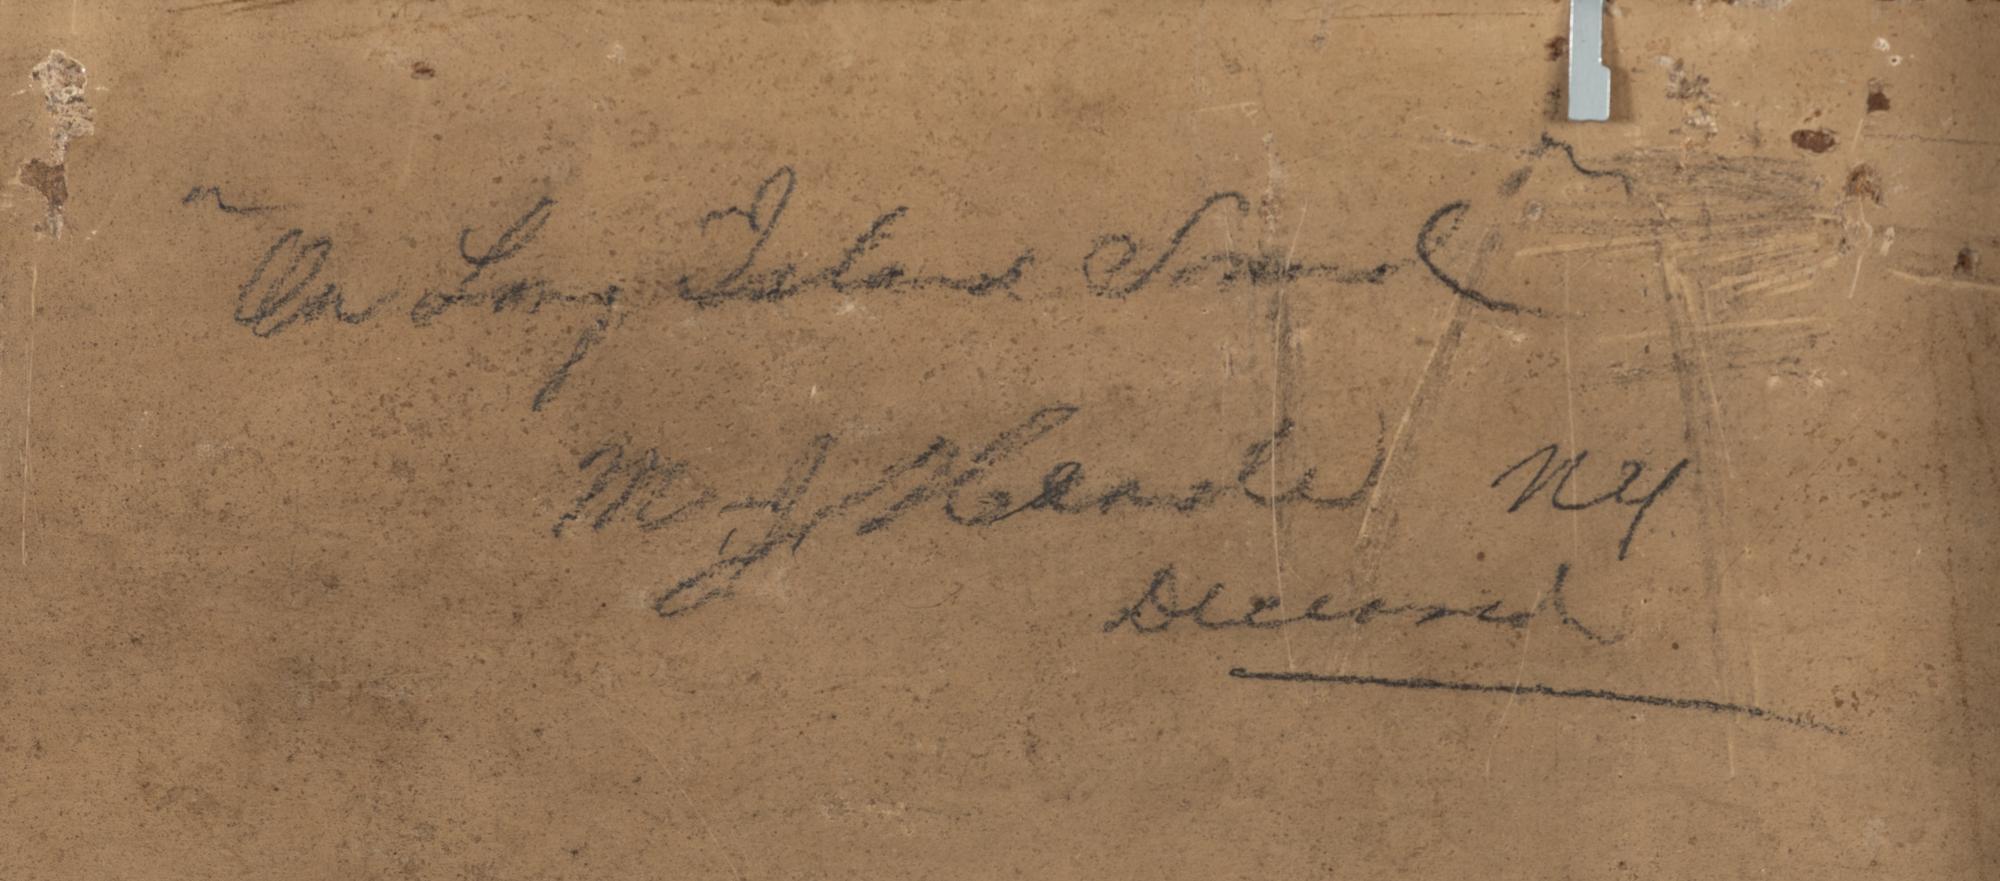 On Long Island Sound
M J NY
Deceased